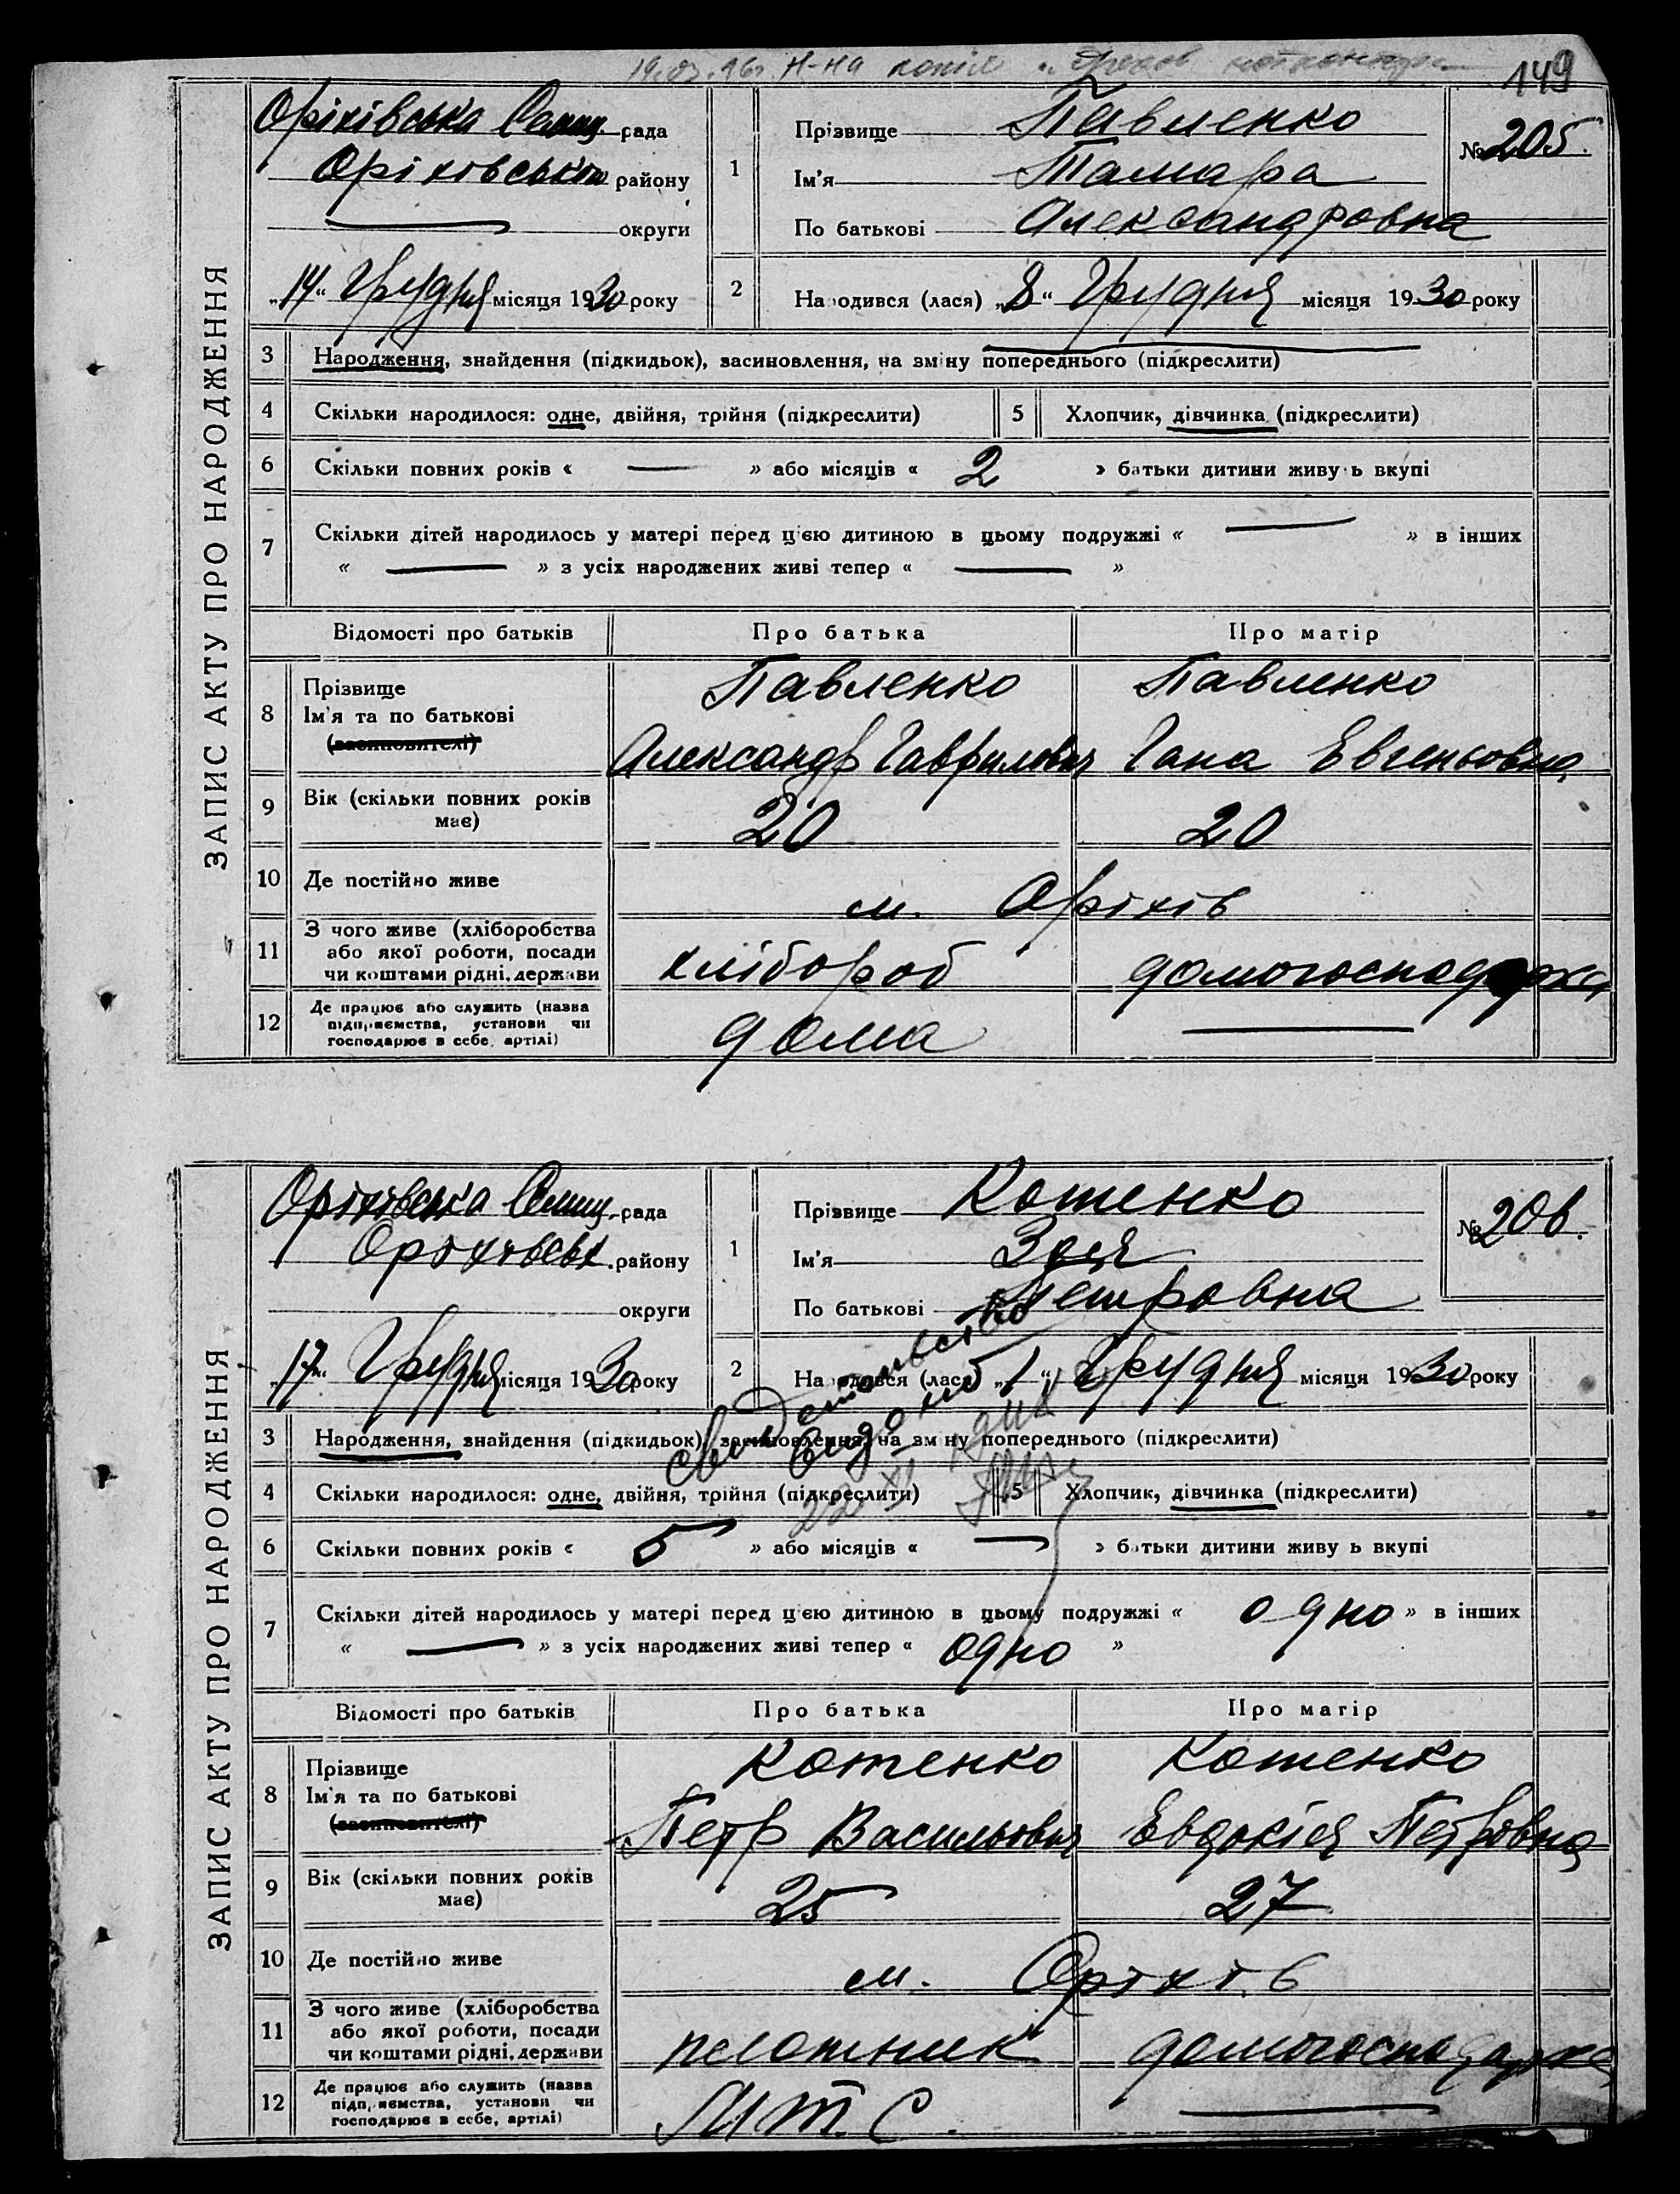 149
ЗАПИС АКТУ ПРО НАРОДЖЕННЯ
Оріхівська Селищ. рада
Оріхівськом району
округи
„14“ Грудня місяця 1930 року
1
Прізвище Павленко
Ім'я Тамара
По батькові Александровна
№ 205.
2
Народився (лася) „8“ Грудня місяця 1930 року
3 Народження, знайдення (підкидьок), засиновлення, на зміну попереднього (підкреслити)
4 Скільки народилося: одне, двійня, трійня (підкреслити) 5 Хлопчик, дівчинка (підкреслити)
6 Скільки повних років « — » або місяців « 2 » батьки дитини живуть вкупі
7 Скільки дітей народилось у матері перед цією дитиною в цьому подружжі « — » в інших
« — » з усіх народжених живі тепер « — »
Відомості про батьків Про батька Про матір
8 Прізвище Павленко Павленко
Ім'я та по батькові Александр Гаврилович Гана Евгеньовна
(засиновителі)
9 Вік (скільки повних років має) 20 20
10 Де постійно живе м. Оріхів
11 З чого живе (хліборобства або якої роботи, посади чи коштами рідні, держави хлібороб
12 Де працює або служить (назва підприємства, установи чи господарює в себе, артілі) дома —
ЗАПИС АКТУ ПРО НАРОДЖЕННЯ
Оріхівська Селищ. рада
Оріхівськ. району
округи
„17“ Грудня місяця 1930 року
1
Прізвище Котенко
Ім'я Зоя
По батькові Петровна
№ 206.
2
Народився (лася) „1“ Грудня місяця 1930 року
3 Народження, знайдення (підкидьок), засиновлення, на зміну попереднього (підкреслити)
4 Скільки народилося: одне, двійня, трійня (підкреслити) 5 Хлопчик, дівчинка (підкреслити)
6 Скільки повних років « 5 » або місяців « — » батьки дитини живуть вкупі
7 Скільки дітей народилось у матері перед цією дитиною в цьому подружжі « одно » в інших
« — » з усіх народжених живі тепер « одно »
Відомості про батьків Про батька Про матір
8 Прізвище Котенко Котенко
Ім'я та по батькові Петр Васильович Евдокія Петровна
(засиновителі)
9 Вік (скільки повних років має) 25 27
10 Де постійно живе м. Оріхів
11 З чого живе (хліборобства або якої роботи, посади чи коштами рідні, держави домогосподарка
12 Де працює або служить (назва підприємства, установи чи господарює в себе, артілі) М.Т.С. —